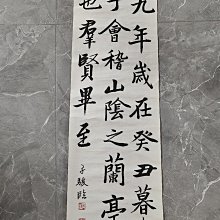 九年歲在癸丑暮
于會稽山陰之蘭亭
也羣賢畢至